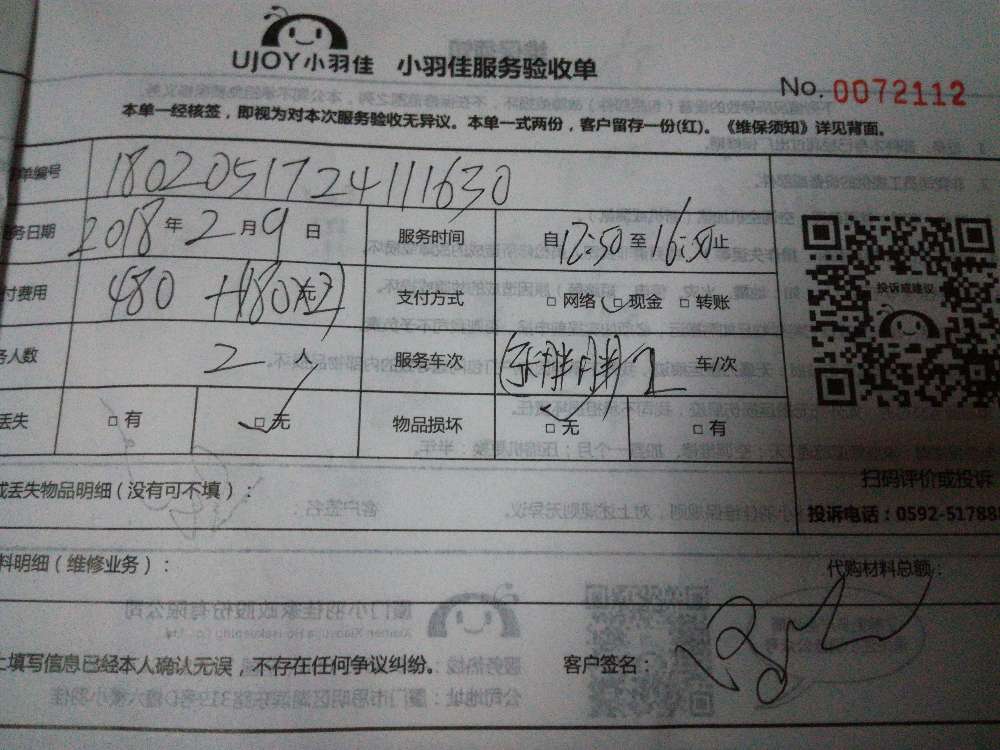 UJOY小羽佳 小羽佳服务验收单
No. 0072112
本单一经核签，即视为对本次服务验收无异议。本单一式两份，客户留存一份(红)。《维保须知》详见背面。
单编号 1802051724111630
务日期 2018年2月9日 服务时间 自12:50至16:50止
付费用 480 +180 支付方式 □网络 □现金 □转账
投诉或建议
务人数 2 服务车次 车/次
丢失 □有 □无 物品损坏 □无 □有
扫码评价或投诉
或丢失物品明细（没有可不填）：
投诉电话：0592-51788
料明细（维修业务）： 代购材料总额：
上填写信息已经本人确认无误，不存在任何争议纠纷。 客户签名：